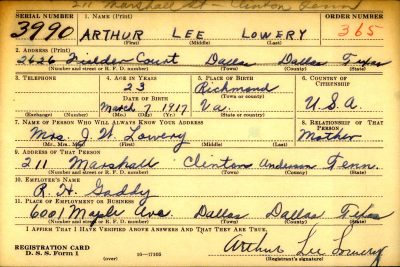 211 Marshall St - Clinton Tenn
SERIAL NUMBER 1. NAME (Print) ORDER NUMBER
3990 ARTHUR LEE LOWERY 365
(First) (Middle) (Last)
2. ADDRESS (Print)
2626 Fielder Court Dallas Dallas Texas
(Number and street or R. F. D. number) (Town) (County) (State)
3. TELEPHONE 4. AGE IN YEARS 5. PLACE OF BIRTH 6. COUNTRY OF CITIZENSHIP
23 Richmond
DATE OF BIRTH (Town or county)
March 7, 1917 Va. U.S.A.
(Exchange) (Number) (Mo.) (Day) (Yr.) (State or country)
7. NAME OF PERSON WHO WILL ALWAYS KNOW YOUR ADDRESS 8. RELATIONSHIP OF THAT PERSON
Mrs. J. W. Lowery Mother
(Mr., Mrs., Miss) (First) (Middle) (Last)
9. ADDRESS OF THAT PERSON
211 Marshall Clinton Anderson Tenn.
(Number and street or R. F. D. number) (Town) (County) (State)
10. EMPLOYER'S NAME
R. H. Gaddy
11. PLACE OF EMPLOYMENT OR BUSINESS
6001 Maple Ave Dallas Dallas Texas
(Number and street or R. F. D. number) (Town) (County) (State)
I AFFIRM THAT I HAVE VERIFIED ABOVE ANSWERS AND THAT THEY ARE TRUE.
REGISTRATION CARD
D. S. S. Form 1 16—17105 Arthur Lee Lowery
(Registrant's signature)